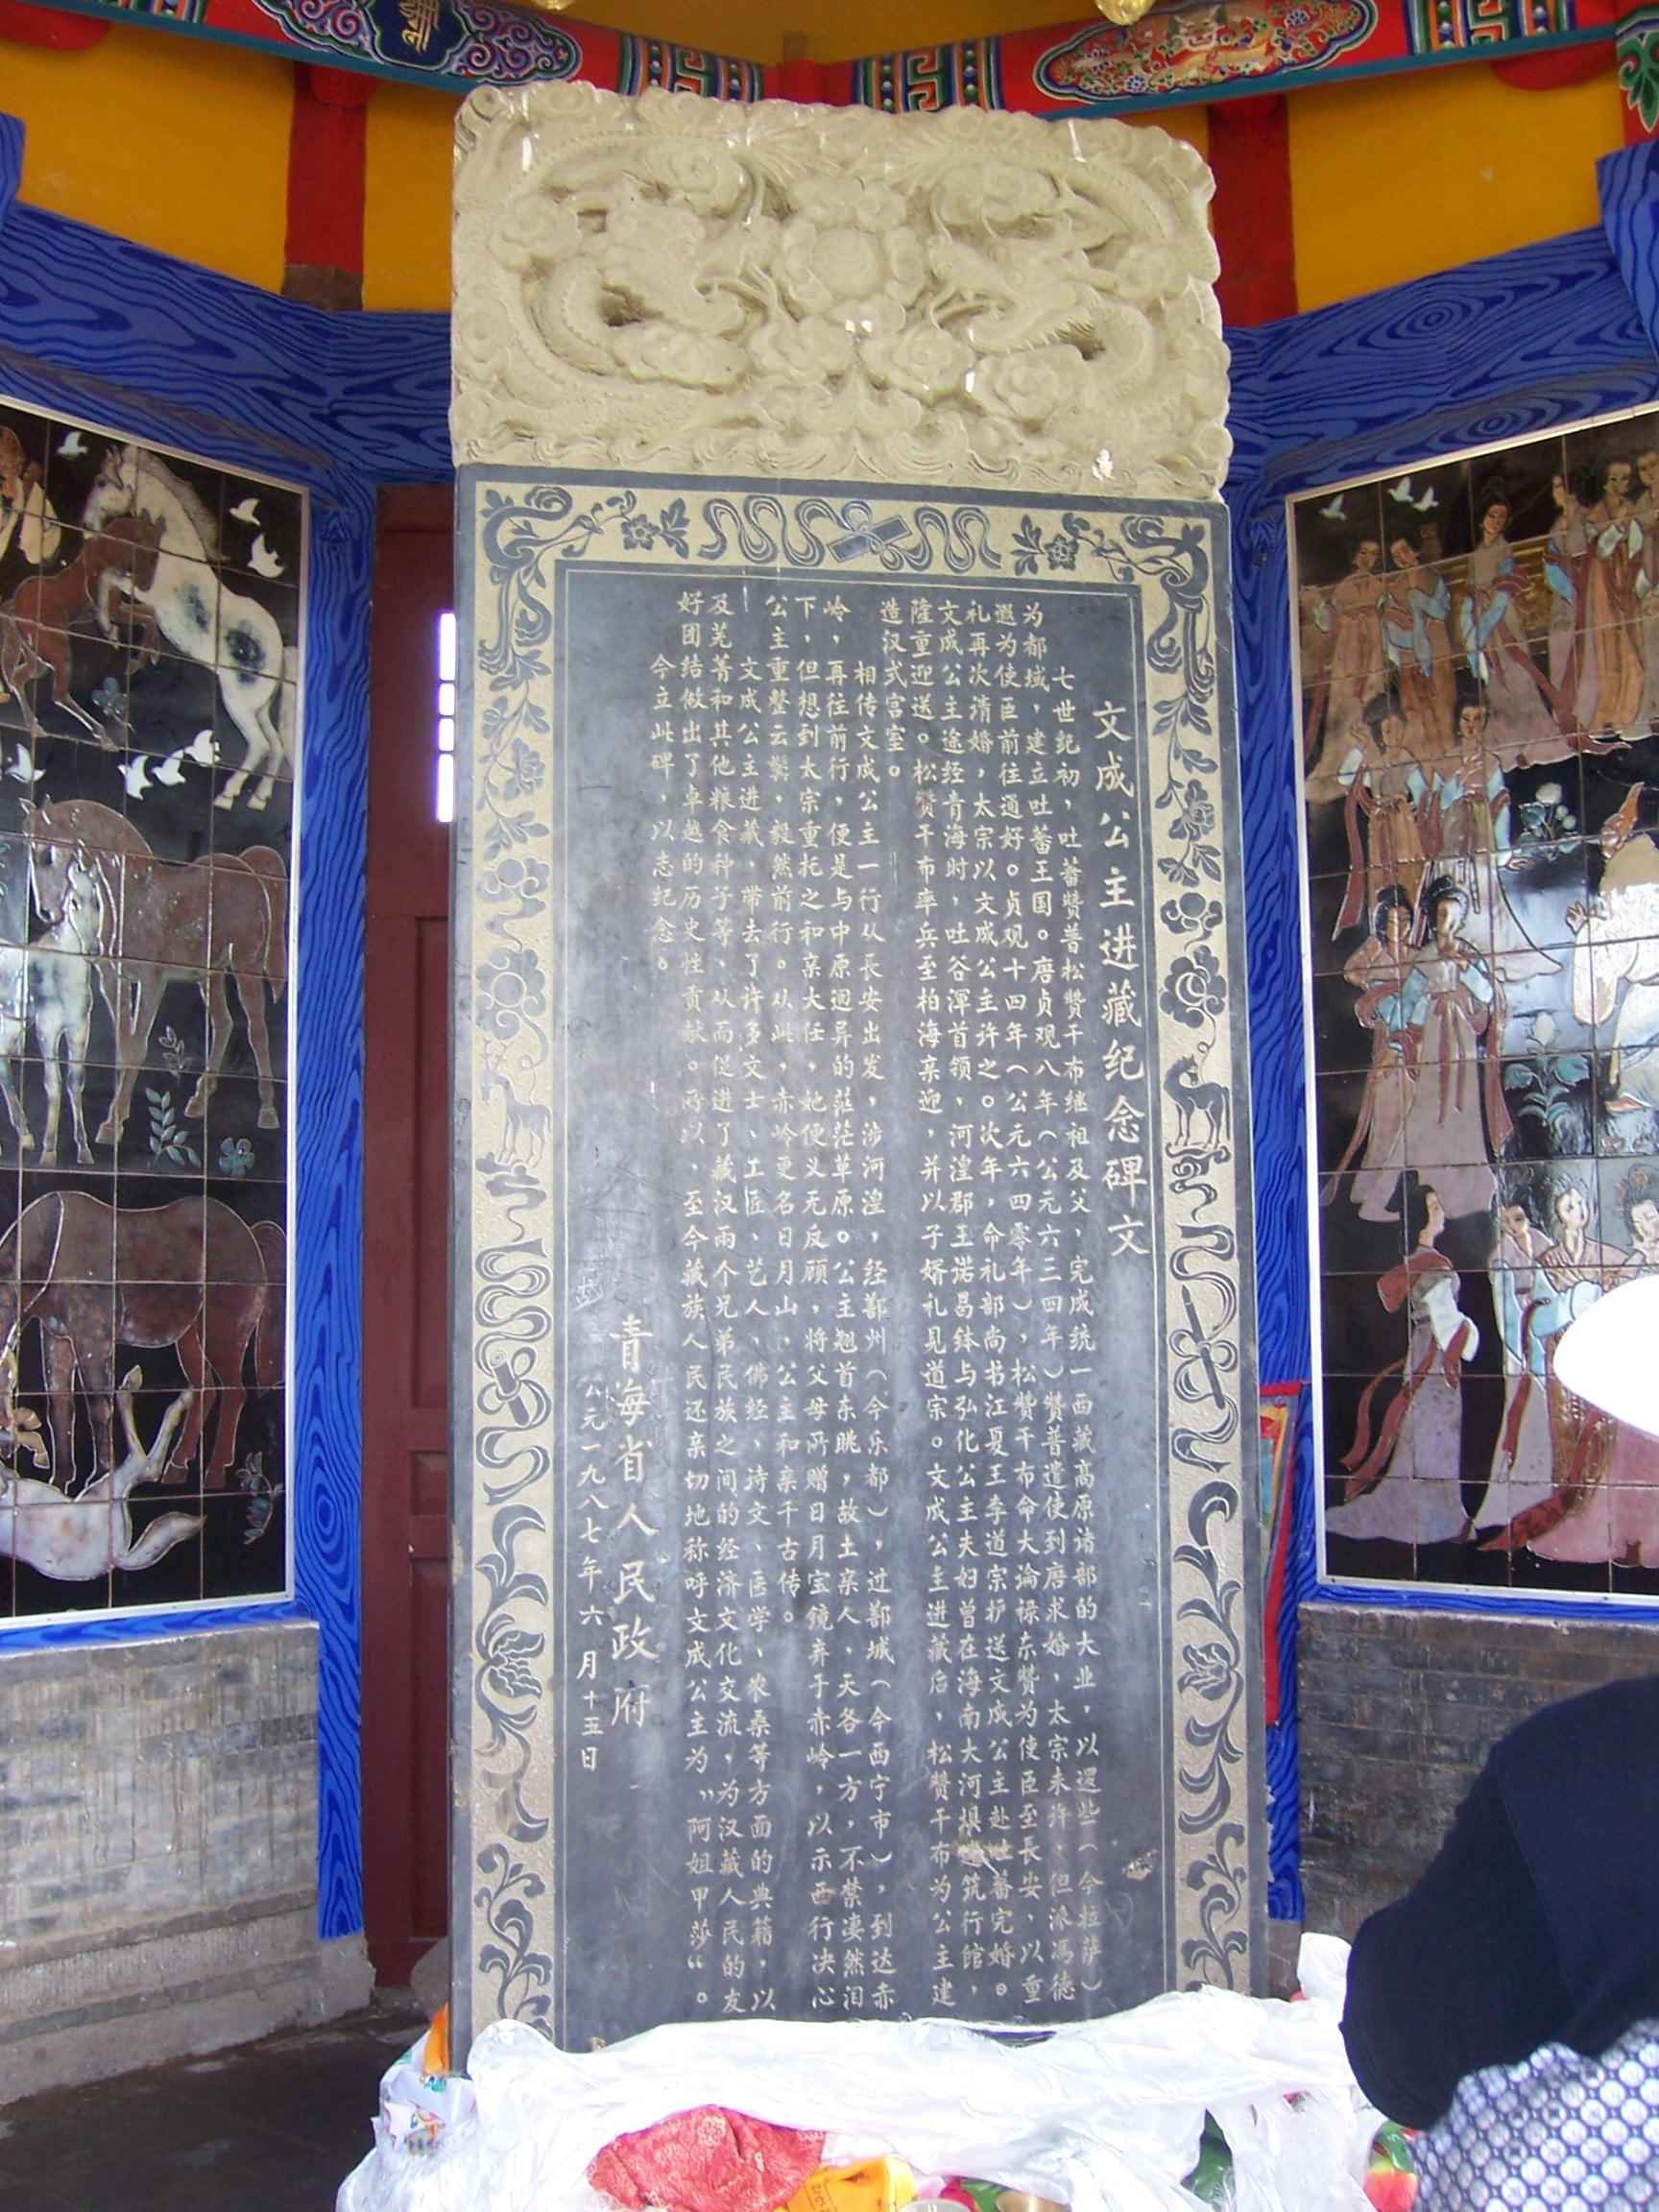 文成公主进藏纪念碑文
七世纪初，吐蕃赞普松赞干布继祖及父，完成统一西藏高原诸部的大业，以逻些（今拉萨）
为都域，建立吐蕃王国。唐贞观八年（公元六三四年）赞普遣使到唐求婚，太宗未许，但派冯德
遐为使臣前往通好。贞观十四年（公元六四零年），松赞干布命大论禄东赞为使臣至長安，以重
礼再次请婚，太宗以文成公主许之。次年，命礼部尚书江夏王李道宗护送文成公主赴吐蕃完婚。
文成公主途经青海时，吐谷渾首领，河湟郡王诺曷钵与弘化公主夫妇曾在海南大河埧建筑行館，
隆重迎送。松赞干布率兵至柏海亲迎，并以子婿礼见道宗。文成公主进藏后，松赞干布为公主建
造汉式宫室。
相传文成公主一行从長安出发，涉河湟，经鄯州（今乐都），过鄯城（今西宁市），到达赤
岭，再往前行，便是与中原迥异的茫茫草原。公主翘首东眺，故土亲人，天各一方，不禁凄然泪
下，但想到太宗重托之和亲大任，她便义无反顾，将父母所赠日月宝镜弃于赤岭，以示西行决心
公主重整云鬓，毅然前行。从此，赤岭更名日月山，公主和亲千古传。
文成公主进藏，带去了许多文士、工匠、艺人、佛经、诗文、医学、农桑等方面的典籍，以
及芜菁和其他粮食种子等，从而促进了藏汉两个兄弟民族之间的经济文化交流，为汉藏人民的友
好团结做出了卓越的历史性贡献。所以，至今藏族人民还亲切地称呼文成公主为”阿姐甲莎“。
今立此碑，以志纪念。
青海省人民政府
公元一九八七年六月十五日